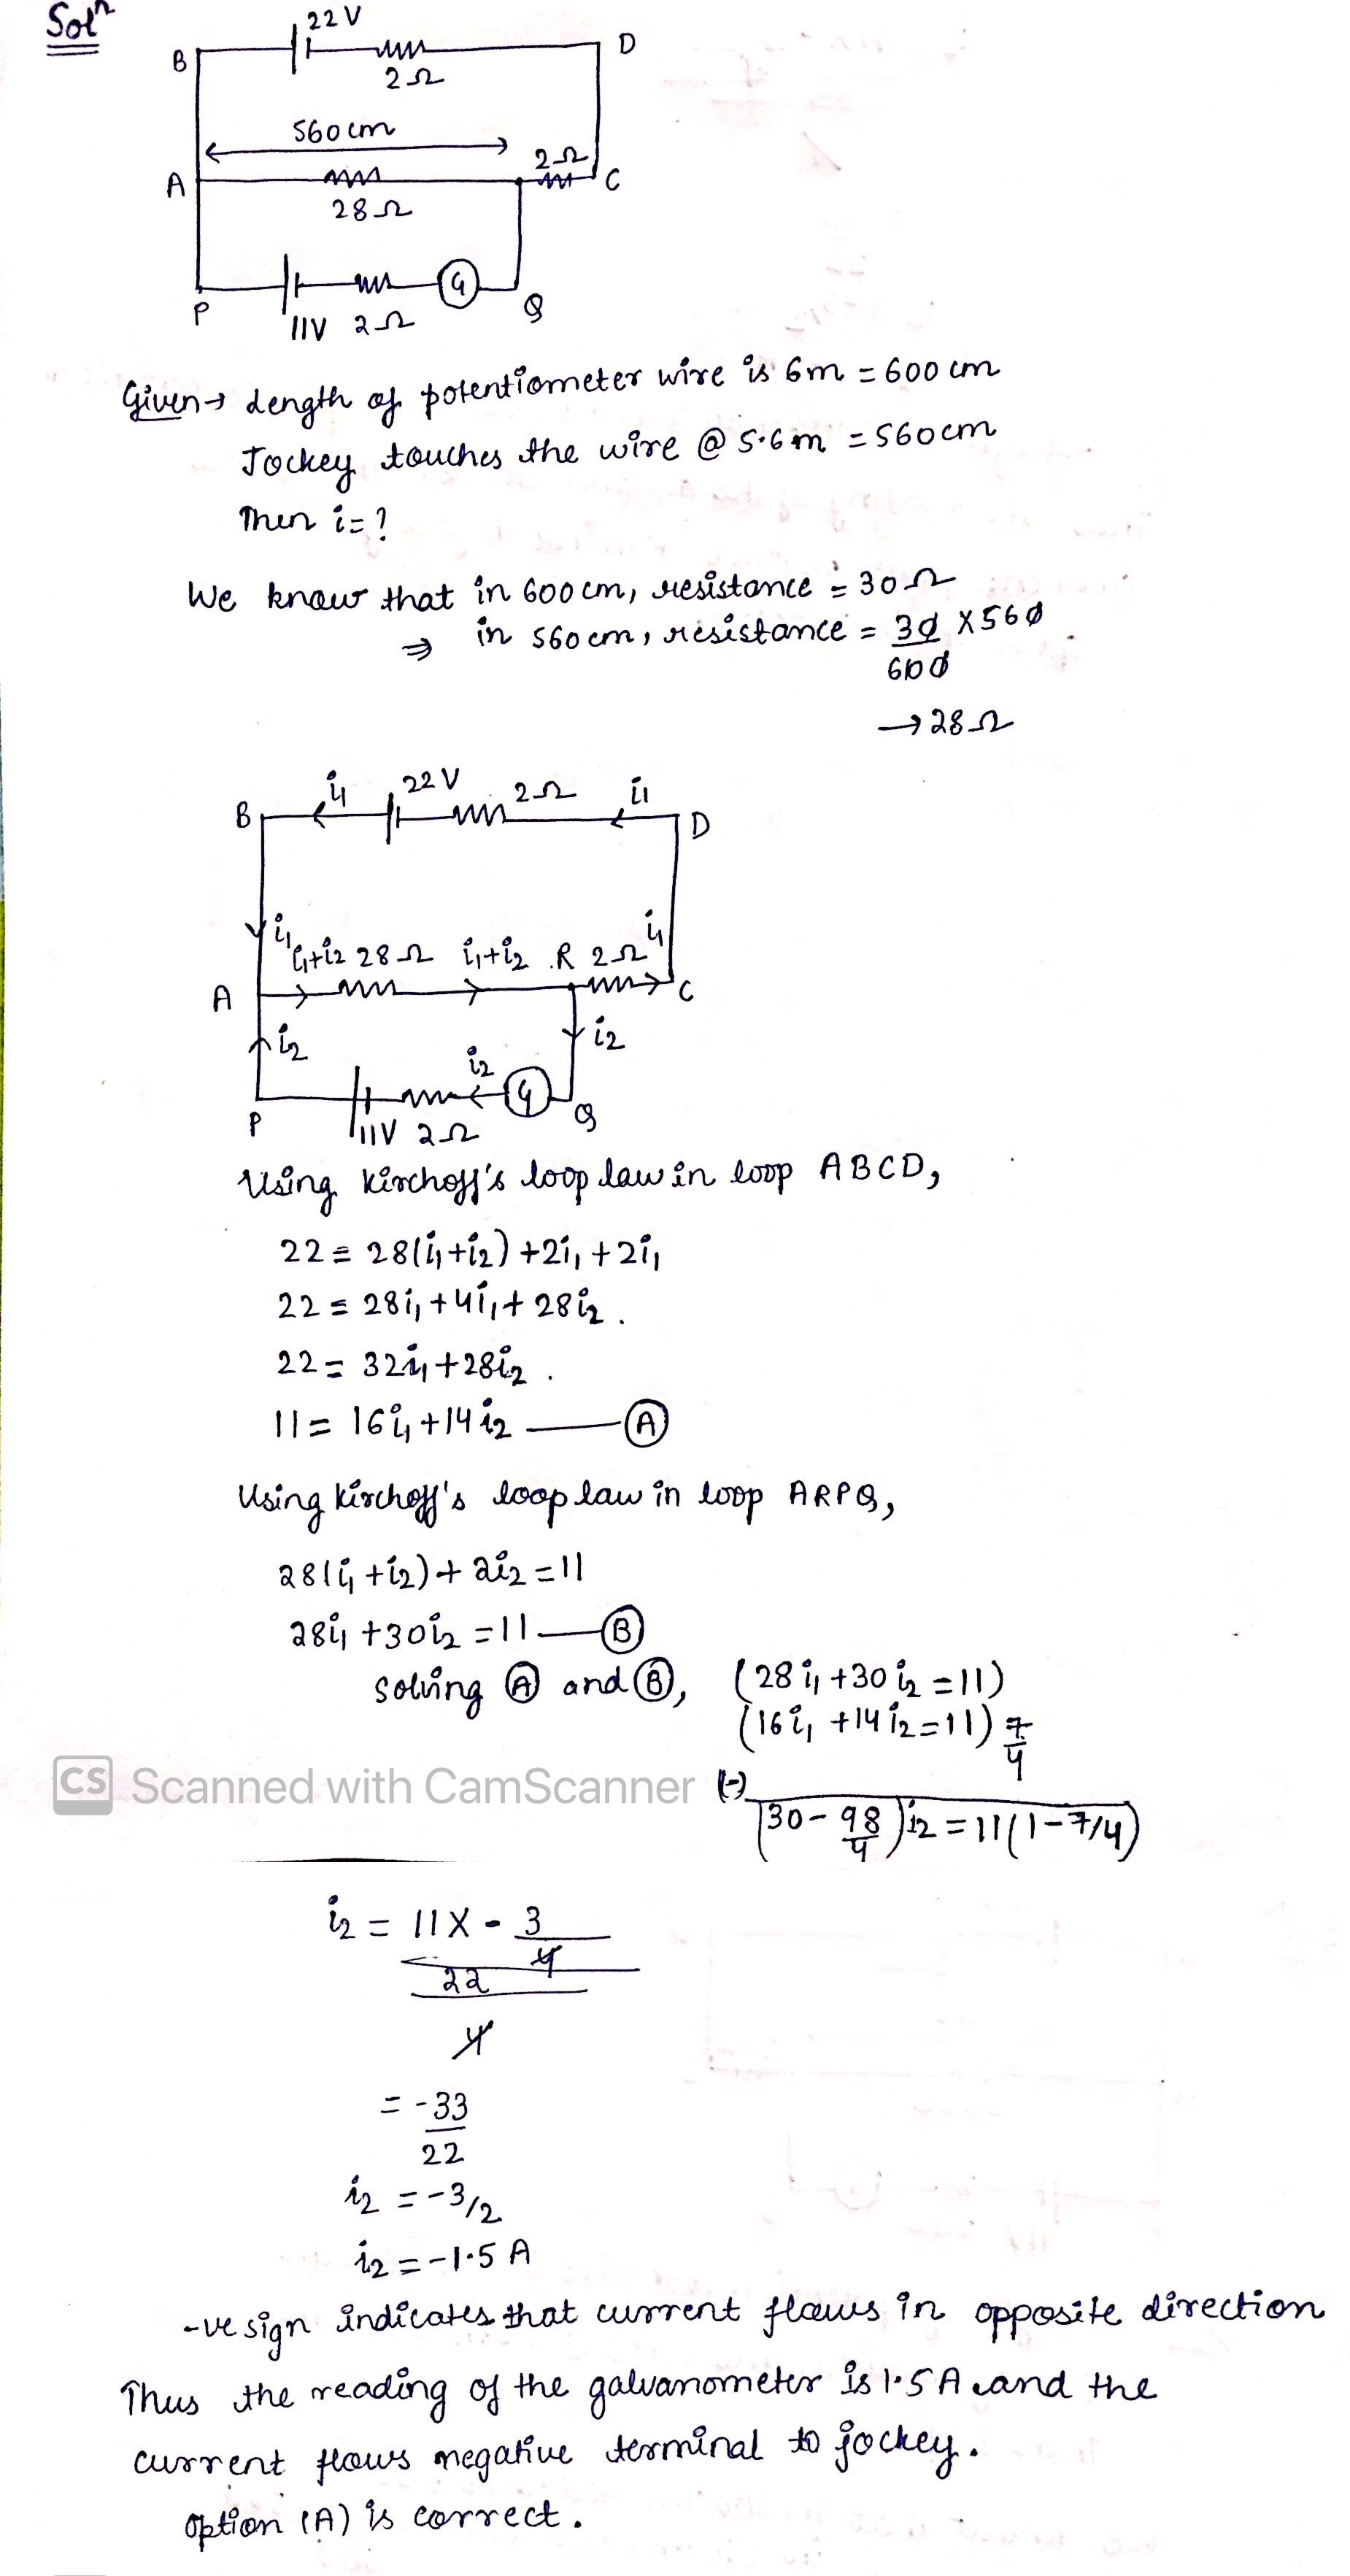 Solⁿ
22V
B
D
2Ω
560 cm
2Ω
A
C
28Ω
G
P
11V 2Ω
Q
Given → Length of potentiometer wire is 6m = 600 cm
Jockey touches the wire @ 5.6m = 560cm
Then i = ?
We know that in 600 cm, resistance = 30Ω
⇒ in 560 cm, resistance = 30/600 × 560
→ 28Ω
i₁ 22V 2Ω i₁
B
D
i₁
i₁+i₂ 28Ω i₁+i₂ R 2Ω i₁
A
C
i₂
i₂
i₂
G
P
11V 2Ω
Q
Using Kirchoff's loop law in loop ABCD,
22 = 28(i₁+i₂) + 2i₁ + 2i₁
22 = 28i₁ + 4i₁ + 28i₂.
22 = 32i₁ + 28i₂.
11 = 16i₁ + 14i₂ — (A)
Using Kirchoff's loop law in loop ARPQ,
28(i₁+i₂) + 2i₂ = 11
28i₁ + 30i₂ = 11 — (B)
solving (A) and (B), (28i₁ + 30i₂ = 11)
(16i₁ + 14i₂ = 11) 7/4
CS Scanned with CamScanner
(-)
(30 - 98/4) i₂ = 11(1 - 7/4)
i₂ = 11 X - 3/4
22/4
= -33/22
i₂ = -3/2
i₂ = -1.5 A
-ve sign indicates that current flows in opposite direction
Thus the reading of the galvanometer is 1.5 A and the
current flows negative terminal to jockey.
Option (A) is correct.